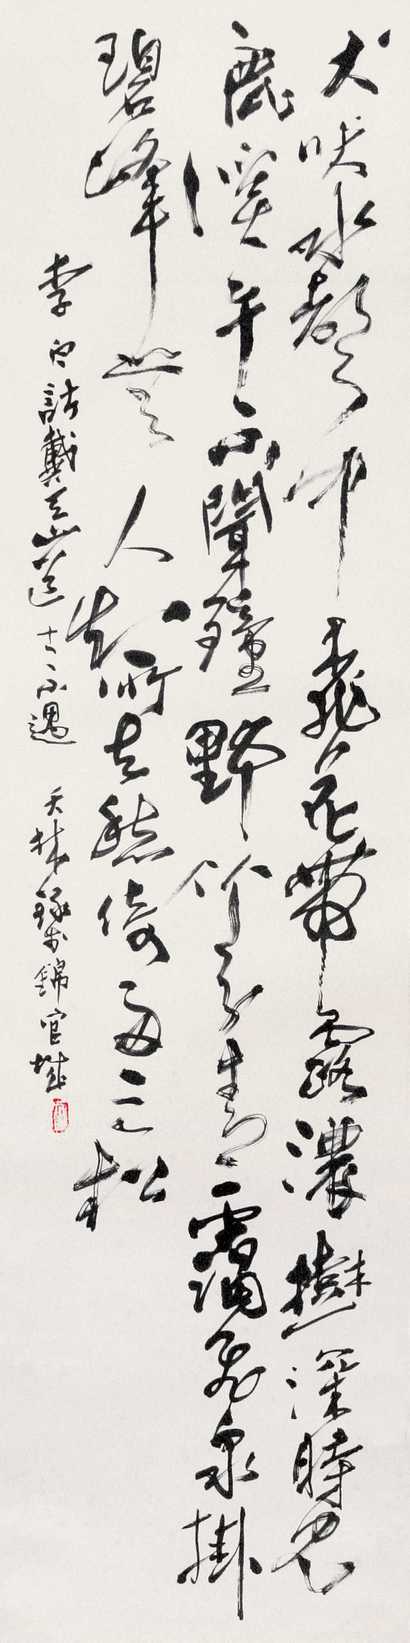 犬吠水聲中桃花帶露濃樹深時見
鹿溪午不聞鐘野竹分青靄飛泉掛
碧峰無人知所去愁倚兩三松
李白訪戴天山道士不遇 錄於錦官城